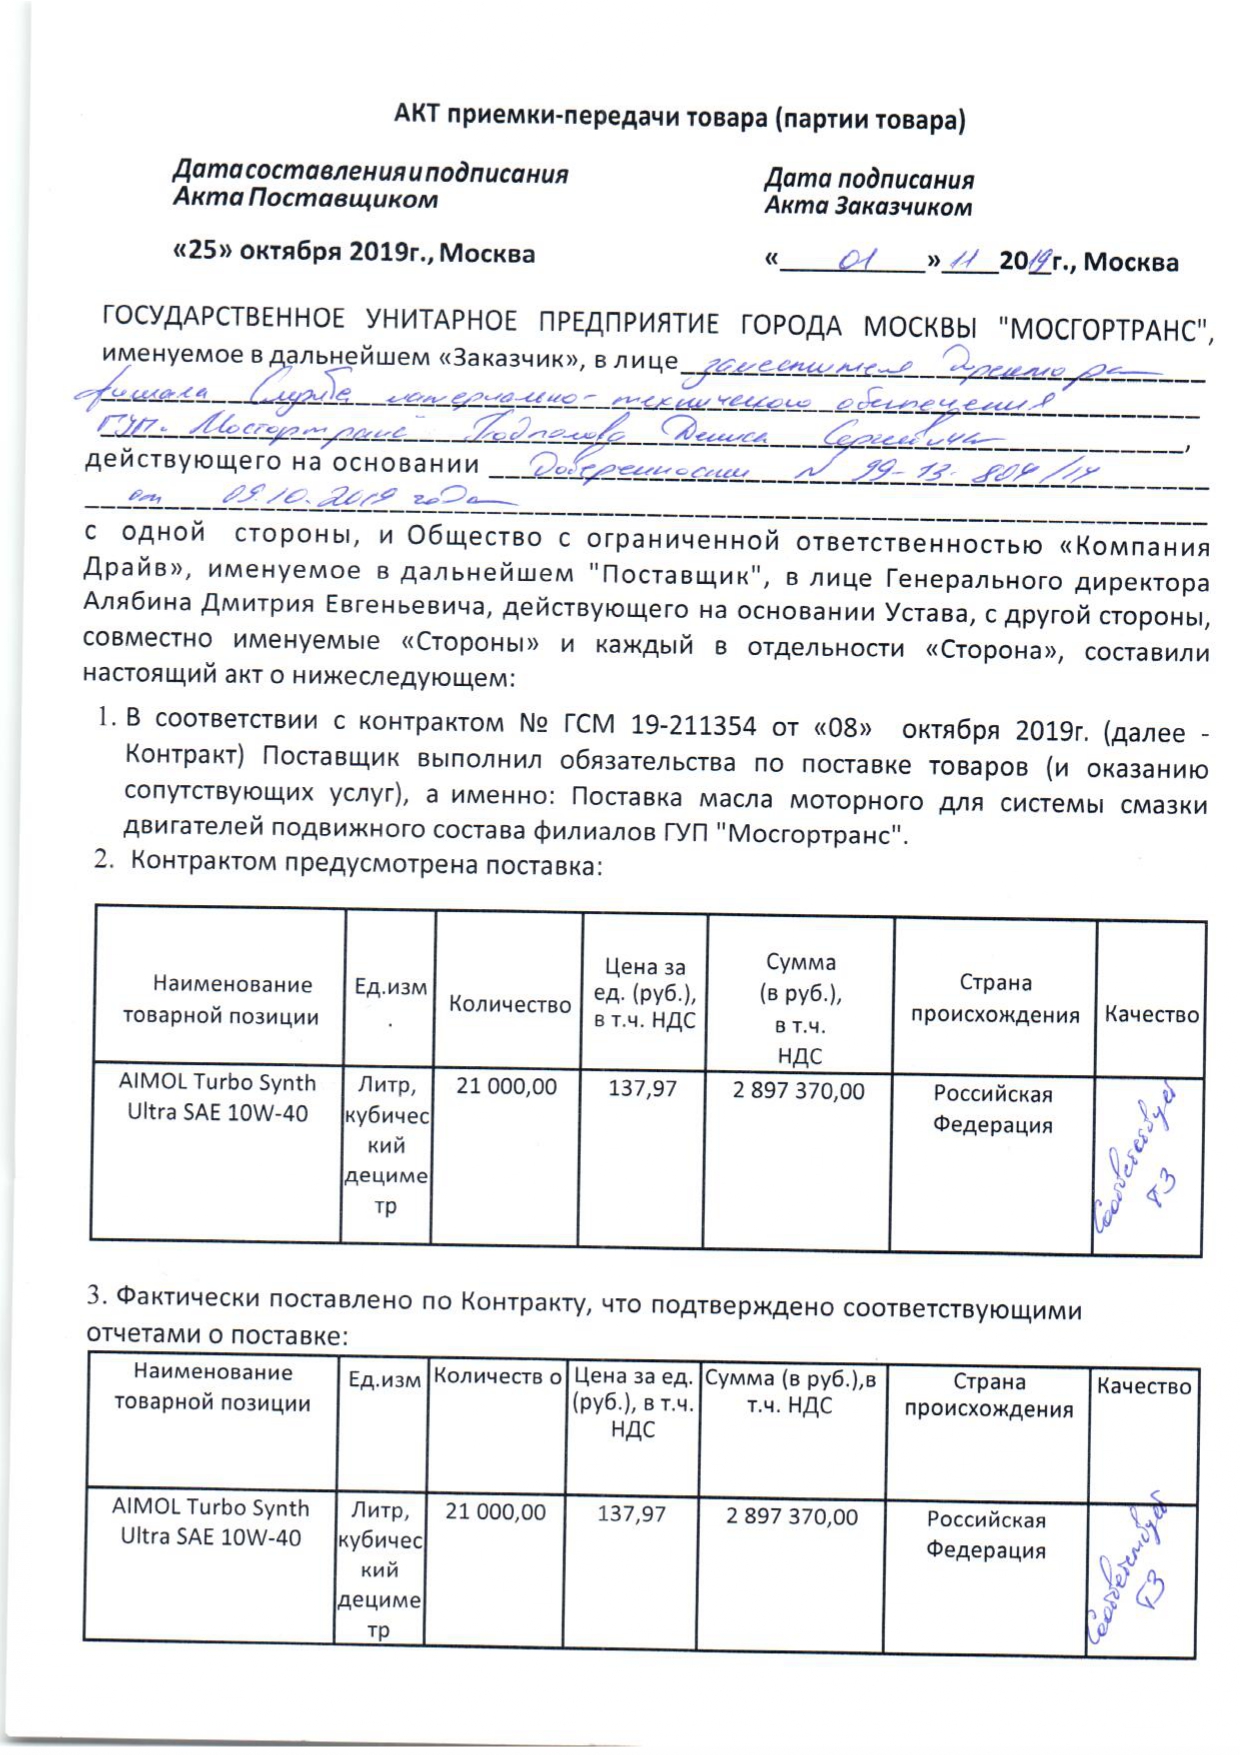 АКТ приемки-передачи товара (партии товара)
Дата составления и подписания
Акта Поставщиком
Дата подписания
Акта Заказчиком
«25» октября 2019г., Москва
«___01___» 11 2019г., Москва
ГОСУДАРСТВЕННОЕ УНИТАРНОЕ ПРЕДПРИЯТИЕ ГОРОДА МОСКВЫ "МОСГОРТРАНС",
именуемое в дальнейшем «Заказчик», в лице заместителя директора
филиала Служба материально-технического обеспечения
ГУП "Мосгортранс" Дениса Сергеевича,
действующего на основании Доверенности № 99-13-804/14
от 09.10.2019 года
с одной стороны, и Общество с ограниченной ответственностью «Компания
Драйв», именуемое в дальнейшем "Поставщик", в лице Генерального директора
Алябина Дмитрия Евгеньевича, действующего на основании Устава, с другой стороны,
совместно именуемые «Стороны» и каждый в отдельности «Сторона», составили
настоящий акт о нижеследующем:
1. В соответствии с контрактом № ГСМ 19-211354 от «08» октября 2019г. (далее -
Контракт) Поставщик выполнил обязательства по поставке товаров (и оказанию
сопутствующих услуг), а именно: Поставка масла моторного для системы смазки
двигателей подвижного состава филиалов ГУП "Мосгортранс".
2. Контрактом предусмотрена поставка:
Наименование
товарной позиции
Ед.изм
.
Количество
Цена за
ед. (руб.),
в т.ч. НДС
Сумма
(в руб.),
в т.ч.
НДС
Страна
происхождения
Качество
AIMOL Turbo Synth
Ultra SAE 10W-40
Литр,
кубичес
кий
дециме
тр
21 000,00
137,97
2 897 370,00
Российская
Федерация
Соответствует
ТЗ
3. Фактически поставлено по Контракту, что подтверждено соответствующими
отчетами о поставке:
Наименование
товарной позиции
Ед.изм
Количеств о
Цена за ед.
(руб.), в т.ч.
НДС
Сумма (в руб.),в
т.ч. НДС
Страна
происхождения
Качество
AIMOL Turbo Synth
Ultra SAE 10W-40
Литр,
кубичес
кий
дециме
тр
21 000,00
137,97
2 897 370,00
Российская
Федерация
Соответствует
ТЗ